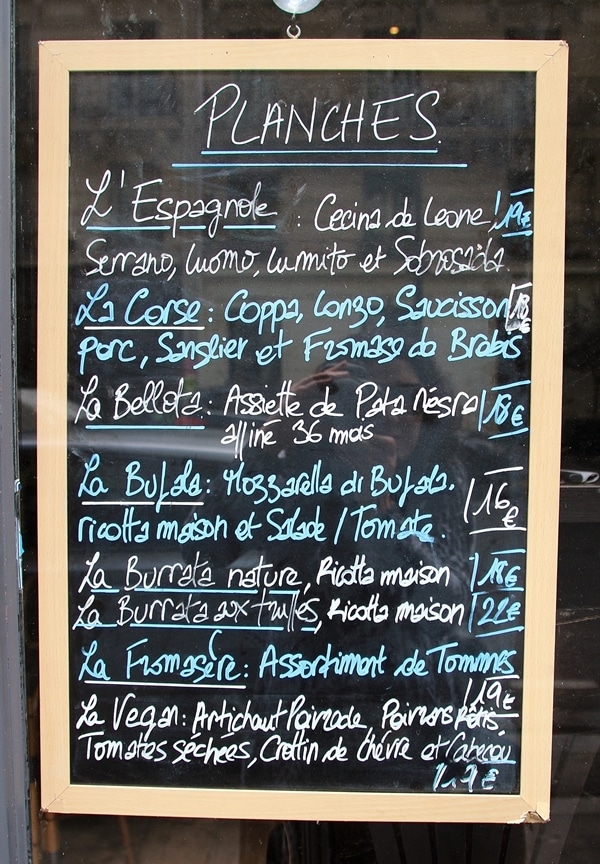 PLANCHES
L'Espagnole : Cecina de Leone, 19€
Serrano, Luomo, Lumito et Sobrosada
La Corse : Coppa, Lonzo, Saucisson 18€
porc, Sanglier et Fromage de Brebis
La Bellota : Assiette de Pata Négra 18€
affiné 36 mois
La Bufala : Mozzarella di Bufala. 16€
ricotta maison et Salade / Tomate.
La Burrata nature, Ricotta maison 18€
La Burrata aux truffes, Ricotta maison 22€
La Fromagère : Assortiment de Tommes
19€
La Vegan : Artichaut Poivrade, Poivrons Rôtis
Tomates séchées, Crottin de chévre et Cabecou
19€